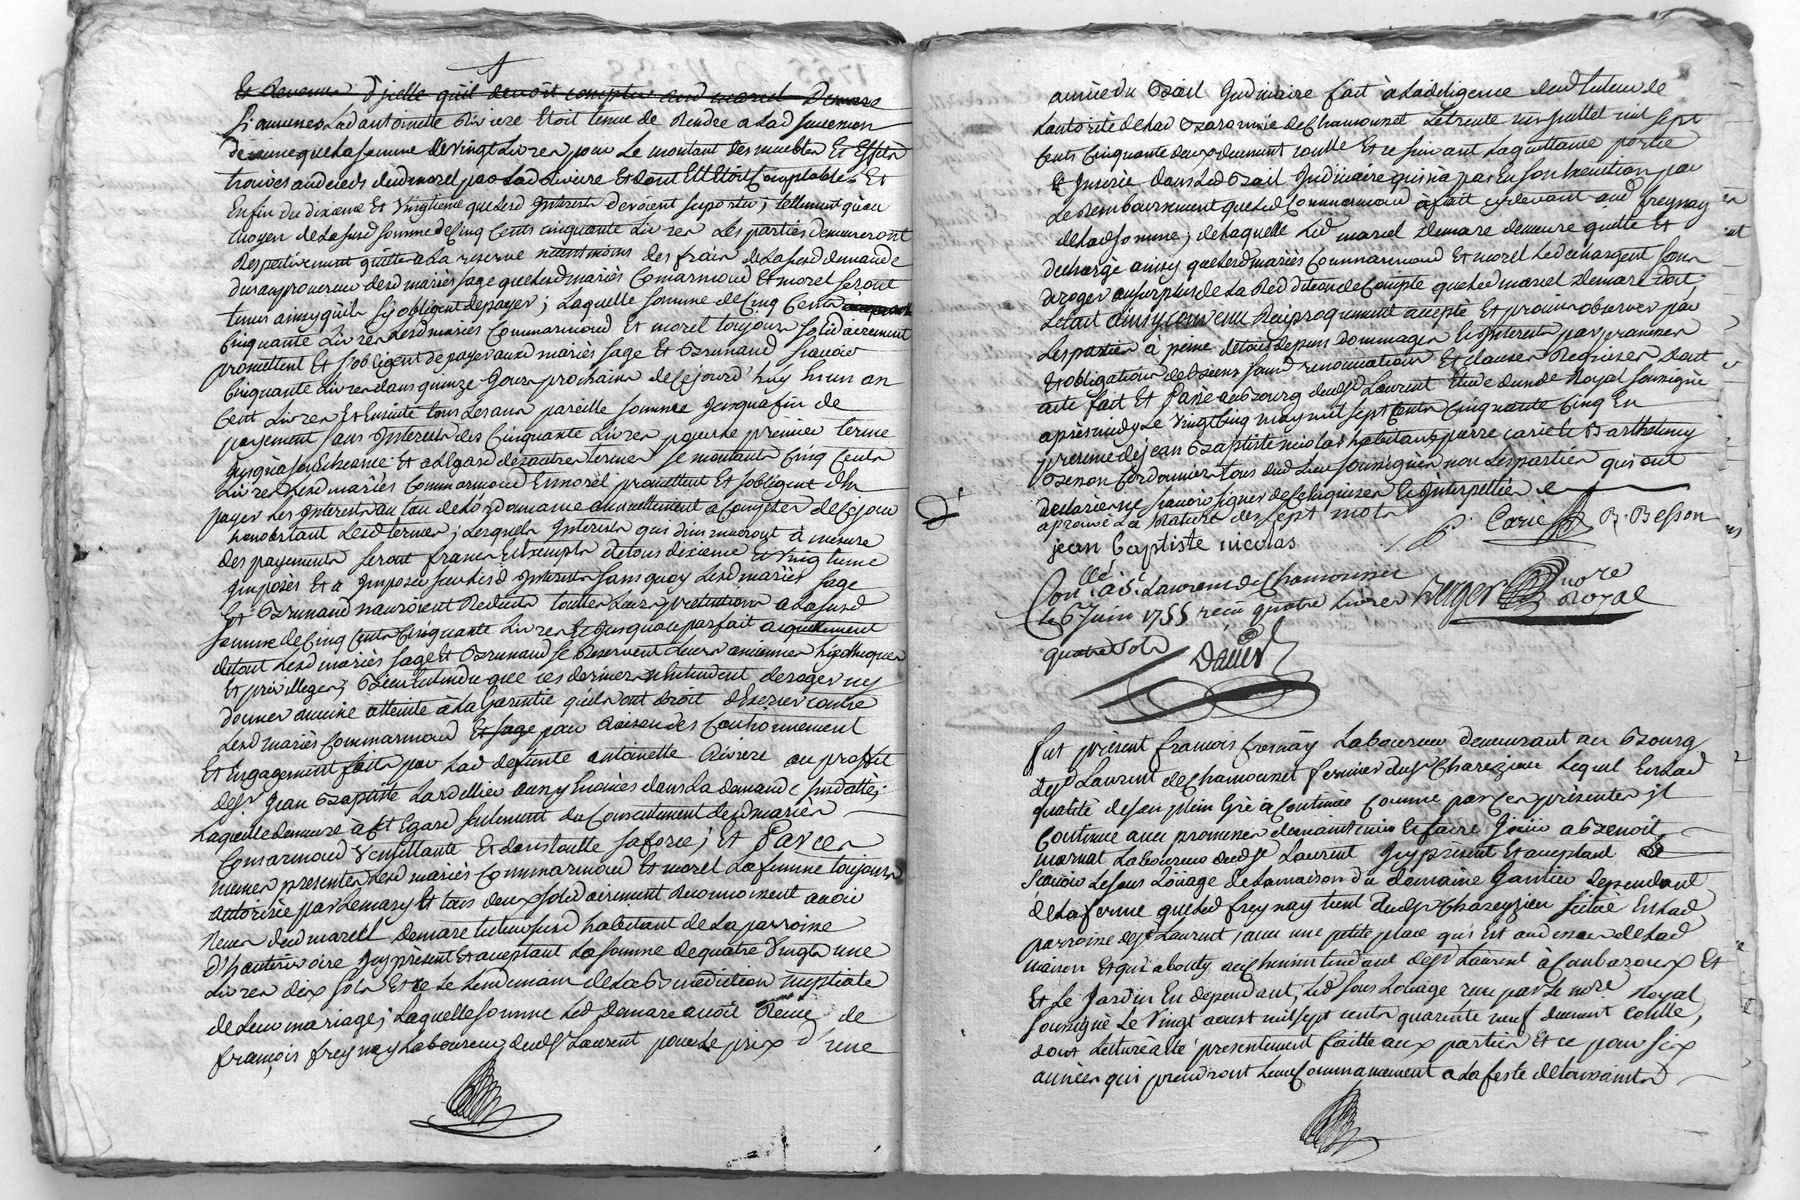 Et devenue d'jcelle qu'il devoit compter aud marcel Demare
Si au mened Lad antoinette Riviere Etoit tenue de Rendre a Lad succession
devenue que La somme de Vingt Livres pour Le montant des meubles Et Effets
trouves au deceds dud morel par Lad Riviere Et dont Elle Etoit Comptable. Et
Enfin du dixieme Et Vingtieme que Lesd Interests devoient suporter; tellement qu'au
moyen de La susd somme de Cinq Cents cinquante Livres Les parties demeureront
Respectivement quittes a La reserve neantmoins des frais de La susd demande
que Lesd mariés Commarmond Et morel seront
tenus ainsy qu'ils s'y obligent de payer; Laquelle somme de Cinq Cents
Cinquante Livres Lesd mariés Commarmond Et morel toujours solidairement
promettent Et s'obligent de payer auxd mariés sage Et Brunand scavoir
Cinquante Livres dans quinze Jours prochains de Cejourd'huy hun an
Cent Livres Et Ensuite tous Les ans pareille somme Jusqua fin de
payement sans Interests des Cinquante Livres pour Le premier terme
Jusqu'a son Echeance Et a L'Egard des autres termes se montants Cinq Cents
Livres Lesd mariés Commarmond Et morel promettent Et s'obligent d'En
payer Les Interests au tau de L'ordonnance annuellement a Compter de Cejour
nonobstant Lesd termes; Lesquels Interests qui diminueront a mesure
des payements seront francs Et Exempts de tous dixieme Et Vingtieme
Imposés Et a Imposer sur Lesd Interests sans quoy Lesd mariés sage
Et Brunand n'auroient Reduits toutes Leurs pretentions a La susd
somme de Cinq Cents Cinquante Livres Et Jusqu'au parfait acquittement
de tout Lesd mariés sage Et Brunand se Reservent Leurs anciennes hipotheques
Et privilleges; Bien Entendu que ces derniers n'entendent deroger ny
donner aucune atteinte a La Garantie qu'ils ont droit d'Exercer contre
Lesd mariés Commarmond Et sage pour Raison des Cautionnement
Et Engagement faits par Lad defunte antoinette Riviere au proffit
de Sr Jean Baptiste Lardillier ainsy Enoncés dans La demande susdattée;
Laquelle demeure a cet Egard seulement du Consentement desd mariés
Comarmond Vemillante Et dans toutte sa force; Et Par Ces
memes presentes Lesd mariés Commarmond Et morel La femme toujours
authorisée par Lemary Et tous deux solidairement Reconnoissent avoir
Receu dud marcel demare tuteur susd habitant de La parroisse
d'hauterivoire Icy present Et acceptant La somme de quatre Vingts une
Livres dix sols Et ce Le Lendemain de La Benediction nuptiale
de Leur mariage; Laquelle somme Led Demare avoit Receue de
françois freynay Laboureur dud St Laurent pour Le prix d'une
année du Bail Judiciaire fait a La diligence dud tuteur de
L'autorité de Lad Baronnie de Chamousset Le trente un juillet mil sept
Cents Cinquante deux duement controllé Et ce suivant La quittance portée
Et Inserée dans Led Bail Judiciaire qui n'a pas Eu son Execution par
Le Remboursement que Led Commarmond a fait cydevant aud freynay
de Lad somme; de Laquelle Led marcel Demare demeure quitte Et
dechargé ainsy que Lesd mariés Commarmond Et morel L'en dechargent sans
deroger au surplus de La Reddition de Compte que Led marcel Demare doit
Le tout ainsy convenu Reciproquement accepté Et promis observer par
Les parties à peine de tous depens dommages Et Interests par promesses
Et obligations de biens soumissions renonciations Et Clauses Requises dont
acte fait Et Passé au Bourg dud St Laurent Etude dunde Royal soussigné
après midy Le Vingt Cinq may mil sept Cents Cinquante Cinq En
presence de jean Baptiste nicolas habitant pierre carie Et Barthelemy
Besson Cordonniers tous dud Lieu soussignés non Les parties qui ont
declaré ne scavoir signer de Ce Enquises Et Interpellées
aprouvé La Rature des sept mots
jean baptiste nicolas Carie B. Besson
Conllé. a St. Laurens de Chamousset
le 6 Juin 1755 reçu quatre livres Berger nore Royal
quatre sols
David
Fut présent francois fresnay Laboureur demeurant au Bourg
de St Laurent de Chamousset fermier du Sr Charezieu Lequel En Lad
qualité de son plein Gré a Continué Comme par Ces présentes jl
Continue avec promesse de maintenir Et faire Jouir a Benoit
mornat Laboureur dud St Laurent Jcy present Et acceptant
scavoir Le sous Loüage de La maison du domaine Gautier dependant
de La ferme que Led freynay tient dud Sr Chareyzieu situé En Lad
parroisse de St Laurent, avec une petite place qui Est au devant de Lad
maison Et qui aboutit au chemin tendant de St Laurent à Et
Et Le Jardin En dependant, Led sous Louage recu par Le nore Royal
soussigné Le Vingt aoust mil sept cents quarente neuf duement contllé,
dont Lecture a été presentement faitte aux parties Et ce pour six
années qui prendront Leur Commancement a La feste de toussaints